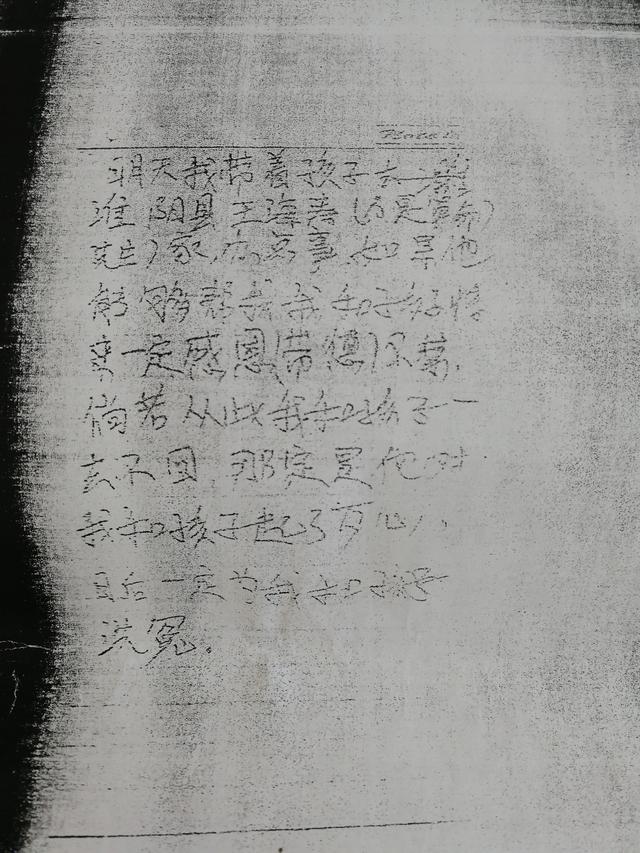 明天我带着孩子去
淮阴县王海春(乃是算命
先生)家,办点事,如果他
能够帮我我和孩子好将
来一定感恩(带德)不尽.
倘若从此我和孩子一
去不回,那定是他对
我和孩子起了歹心,
日后一定为我和孩子
洗冤.